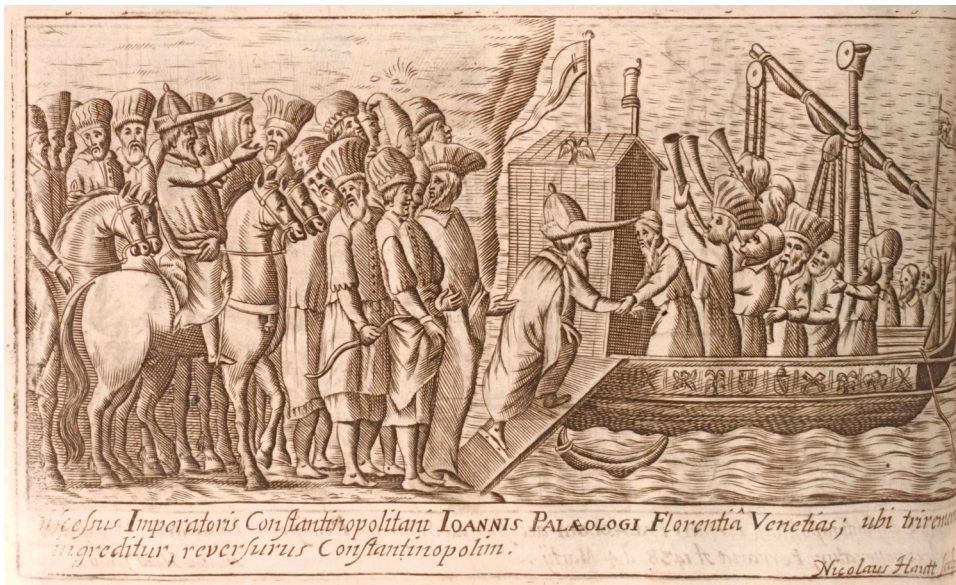 Imperatoris Constantinopolitani IOANNIS PALÆOLOGI Florentiâ Venetias; ubi
ingreditur, reversurus Constantinopolim.
Nicolaus